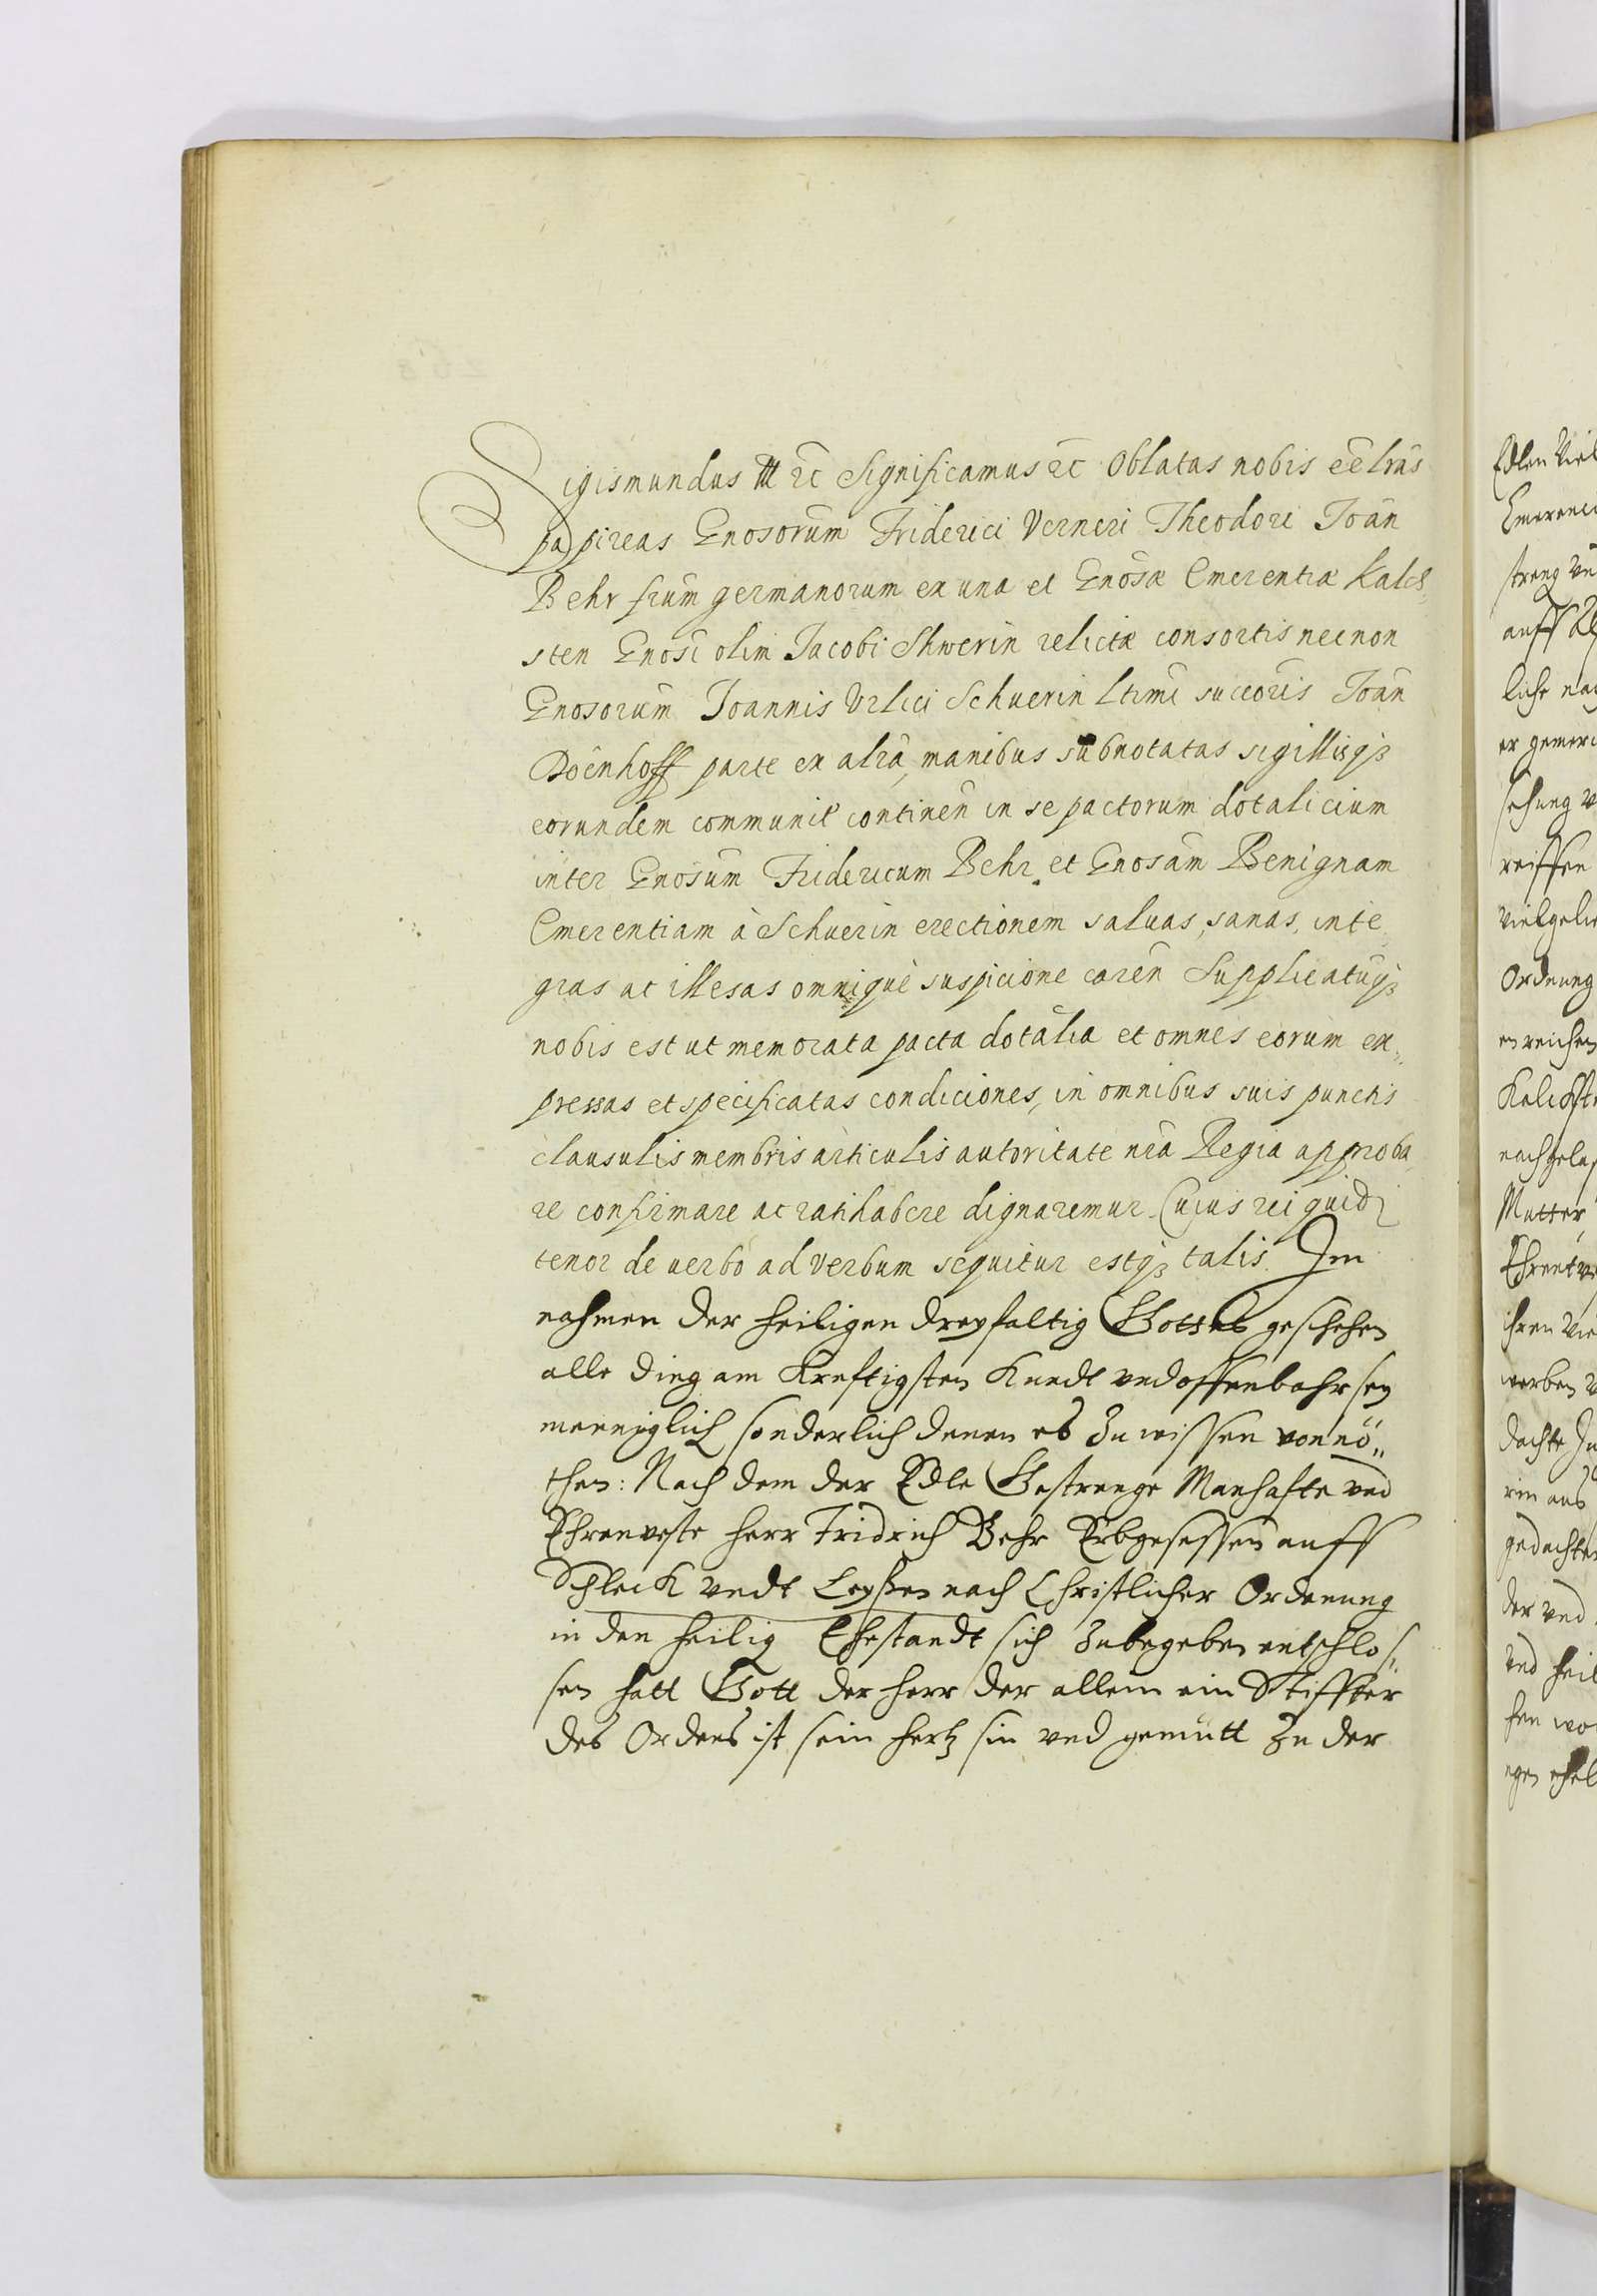 Sigismundus III etc Significamus etc Oblatas nobis eē lrās
papireas Gnosorum Friderici Verneri Theodori Joān
Behr frūm germanorum ex una et Gnosæ Emerentiæ Kalck„
sten Gnosi olim Jacobi Shwerin relictæ consortis necnon
Gnosorūm Joannis Vrlici Schuerin ltimi succoris Joān
Doēnhoff parte ex alrā, manibus subnotatas sigillisqз
eorundem communit continēn in se pactorum dotalicium
inter Gnosūm Fridericum Behr et Gnosām Benignam
Emerentiam à Schuerin erectionem saluas, sanas, inte„
gras ac illesas omnique suspicione carēn Supplicatūqз
nobis est ut memorata pacta dotalia et omnes eorum ex„
pressas et specificatas condiciones, in omnibus suis punctis
clausulis membris articulis autoritate nrā Regia approba„
re confirmare ac ratihabere dignaremur. Cujus rei quid
tenor de uerbo ad verbum sequitur estqз talis. Im
nahmen der heiligen dreyfaltig Gottes geschehen
alle ding am Kreftigsten Kundt vnd offenbahr sey
menniglich sonderlich denen es zu wissen vonnö„
then: Nach dem der Edle Gestrenge Manhafte vnd
Ehrenveste herr Fridrich Behr Erbgesessen auff
Schleck vndt Leyßen nach Christlicher Ordenung
in den heilig Ehestandt sich zubegeben entschlos„
sen hatt Gott der herr der allein ein Stiffter
des Ordens ist sein hertz sin vnd gemütt zu der
Edlen Viel
Emerenci
streng
auff
liche
er
sehung
reissen
Vielgelie
Ordnung
en reichen
Kalckste
nachgelas
Mutter
ihren Vie
werben
dachte
rin aus
gedachte
der vnd
vnd heil